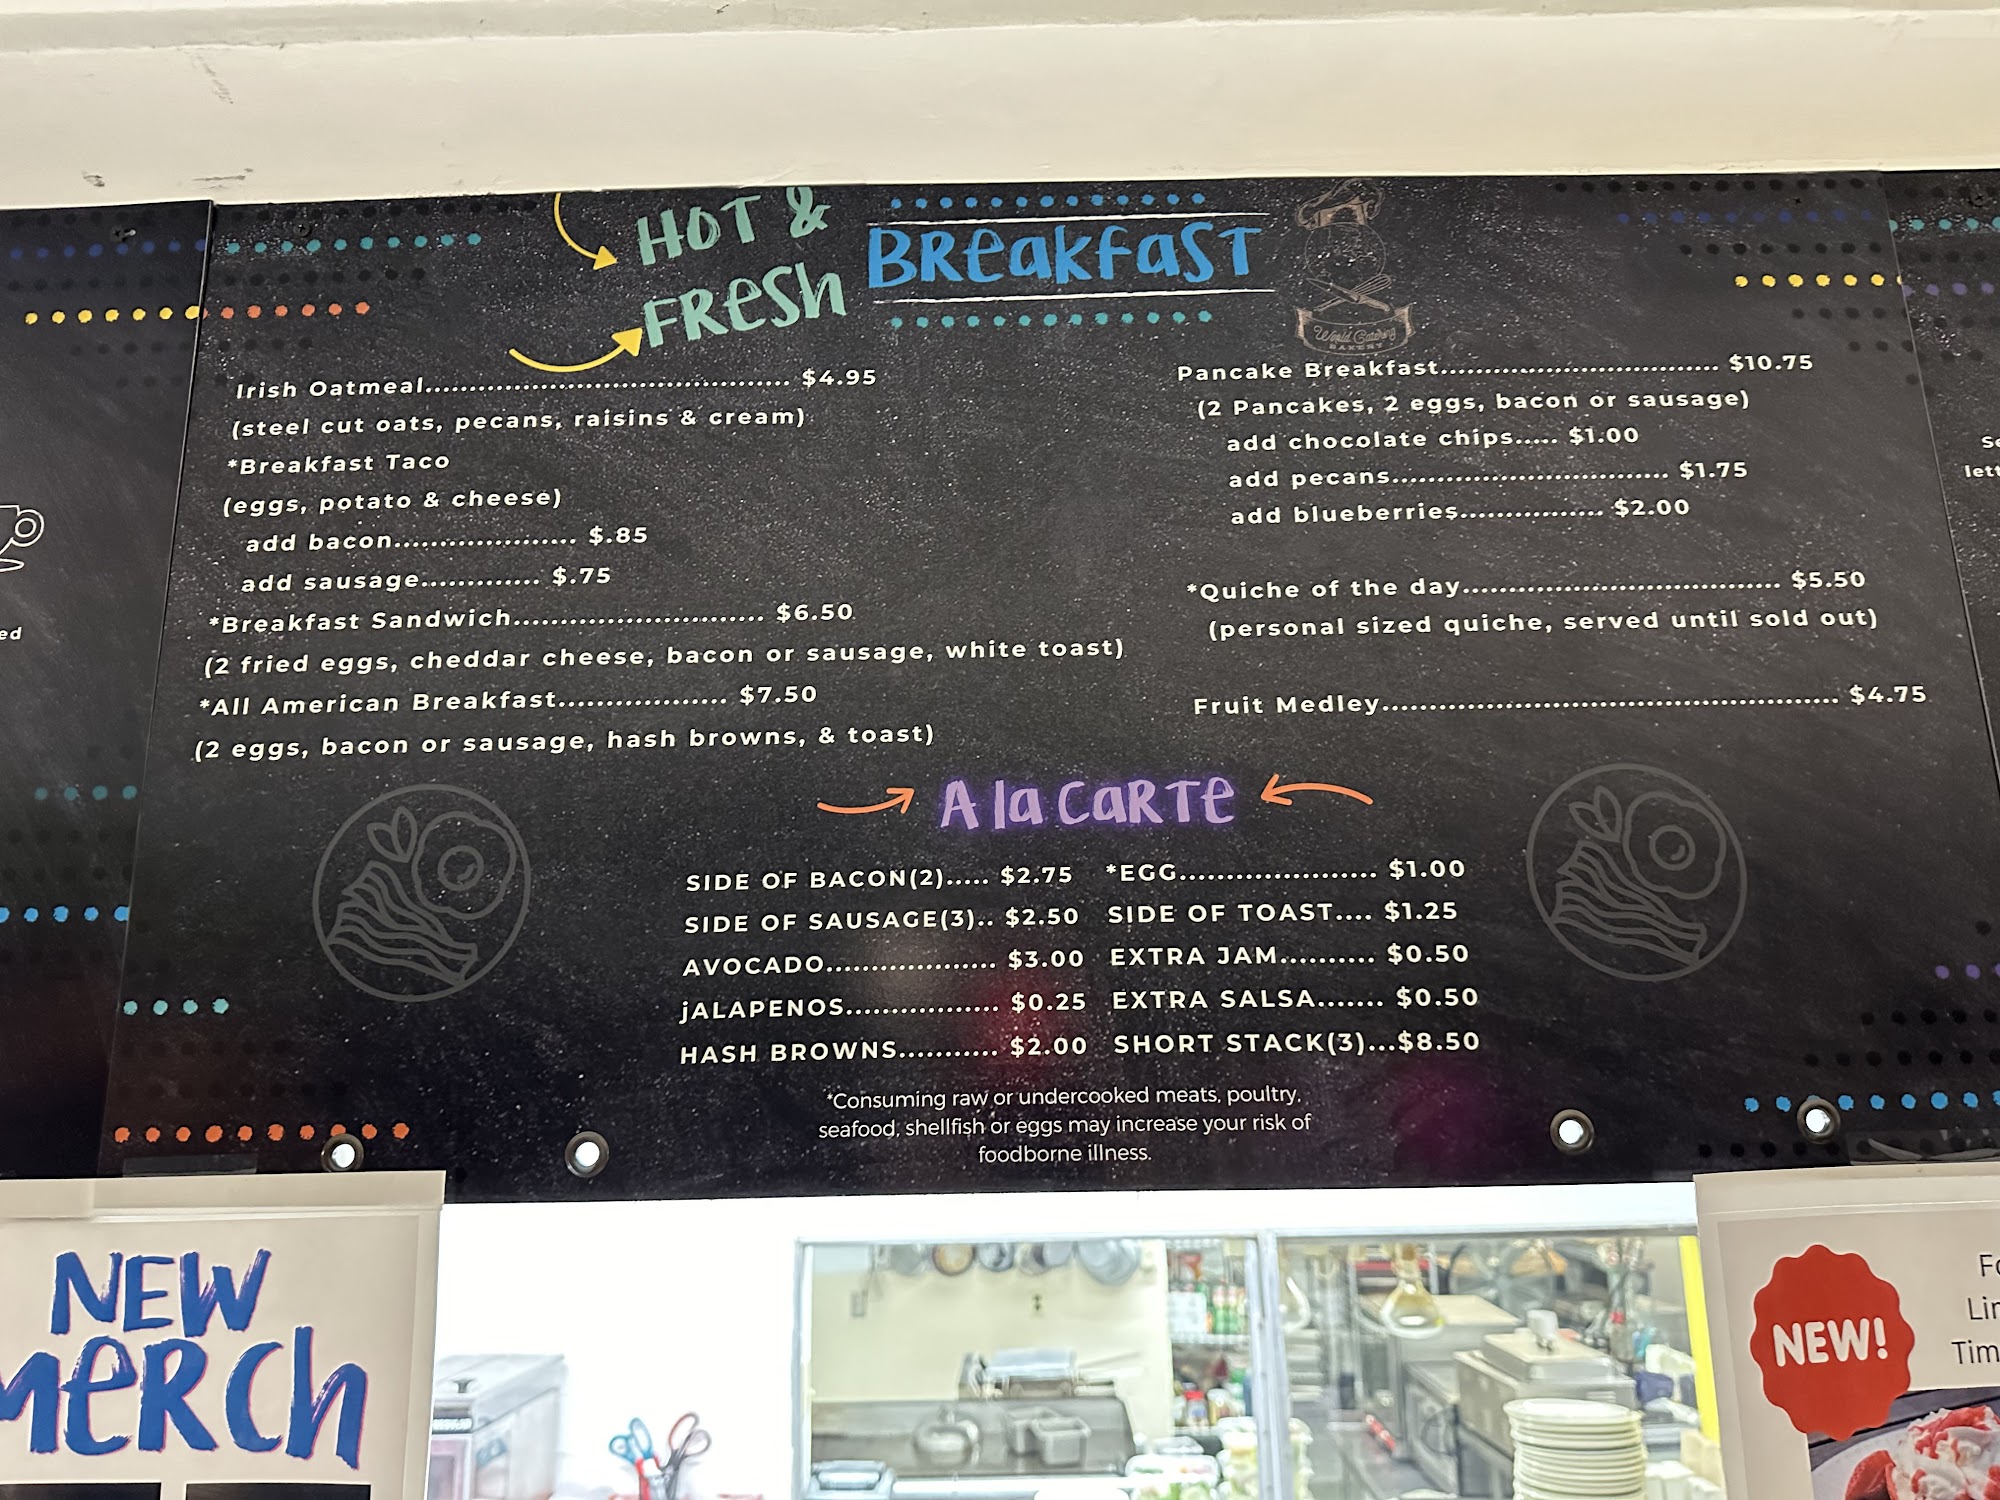 HOT &
FRESH
BREAKFAST
World Catering
BAKERY
Irish Oatmeal........................................ $4.95
(steel cut oats, pecans, raisins & cream)
*Breakfast Taco
(eggs, potato & cheese)
add bacon.................... $.85
add sausage............. $.75
*Breakfast Sandwich........................... $6.50
(2 fried eggs, cheddar cheese, bacon or sausage, white toast)
*All American Breakfast................... $7.50
(2 eggs, bacon or sausage, hash browns, & toast)
Pancake Breakfast............................... $10.75
(2 Pancakes, 2 eggs, bacon or sausage)
add chocolate chips..... $1.00
add pecans............................... $1.75
add blueberries................ $2.00
*Quiche of the day................................... $5.50
(personal sized quiche, served until sold out)
Fruit Medley.................................................. $4.75
A la CARTE
SIDE OF BACON(2)..... $2.75
SIDE OF SAUSAGE(3).. $2.50
AVOCADO................... $3.00
jALAPENOS................. $0.25
HASH BROWNS........... $2.00
*EGG...................... $1.00
SIDE OF TOAST.... $1.25
EXTRA JAM.......... $0.50
EXTRA SALSA....... $0.50
SHORT STACK(3)...$8.50
*Consuming raw or undercooked meats, poultry,
seafood, shellfish or eggs may increase your risk of
foodborne illness.
NEW
MERCH
NEW!